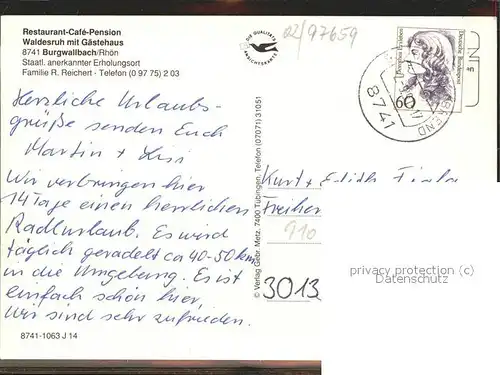 Restaurant-Café-Pension
Waldesruh mit Gästehaus
8741 Burgwallbach/Rhön
Staatl. anerkannter Erholungsort
Familie R. Reichert · Telefon (0 97 75) 2 03
02/97659
60
Deutsche Bundespost
8741
Herzliche Urlaubs-
grüße senden Euch
Martin + Lisi
Wir verbringen hier
14 Tage einen herrlichen
Radlurlaub. Es wird
täglich geradelt ca 40-50 km
in die Umgebung. Es ist
einfach schön hier,
Wir sind sehr zufrieden.
8741-1063 J 14
© Verlag Gebr. Metz, 7400 Tübingen, Telefon (07071) 31051
Kurt + Edith
910
3013
privacy protection (c)
Datenschutz